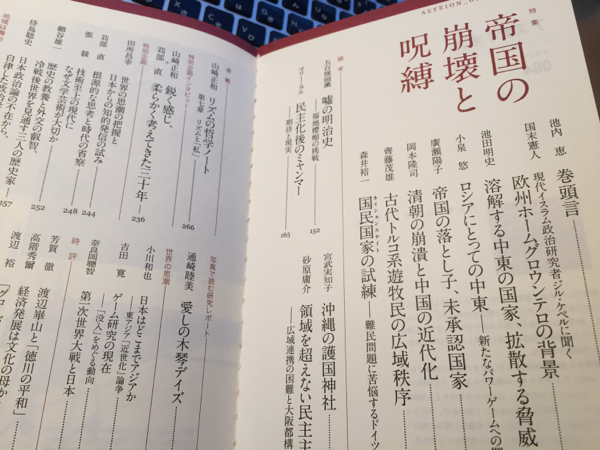 AΣTEION_0
特集
帝国の
崩壊と
呪縛
池内 恵 巻頭言
国末憲人 現代イスラム政治研究者ジル・ケペルに聞く
欧州ホームグロウンテロの背景
池田明史 溶解する中東の国家、拡散する脅威
小泉 悠 ロシアにとっての中東 ― 新たなパワーゲームへの
廣瀬陽子 帝国の落とし子、未承認国家
岡本隆司 清朝の崩潰と中国の近代化
齊藤茂雄 古代トルコ系遊牧民の広域秩序
森井裕一 国民国家の試練 ― 難民問題に苦悩するドイツ
論考
五百旗頭薫 嘘の明治史
― 福地櫻痴の挑戦 152
マリー・ラル 民主化後のミャンマー
― 期待と現実 165
宮武実知子 沖縄の護国神社
砂原庸介 領域を超えない民主主
― 広域連携の困難と大阪都構
連載
山崎正和 リズムの哲学ノート
第七章 リズムと「私」 266
特別企画インタビュー
山崎正和
苅部 直 鋭く感じ、
柔らかく考えてきた三十年 236
特別企画
田所昌幸 世界の思潮の把握と
日本からの知的発信の試み
張 競 根源的な思考と時代の省察 244
苅部 直 技術至上の現代に
なぜ文学芸術が大切か 248
細谷雄一 歴史の教養と外交の叡智、
冷戦後世界を見通す三人の歴史家 252
待鳥聡史 日本政治論の不在から、
自律した政治 257
地域は舞台
写真で読む研究レポート
通崎睦美 愛しの木琴デイズ
世界の思潮
小川和也 日本はどこまでアジアか
― 東アジア「近世化」論争
吉田 寛 ゲーム研究の現在
― 「没入」をめぐる動向
奈良岡聰智 第一次世界大戦と日本
時評
芳賀 徹 渡辺崋山と「徳川の平和」
高階秀爾 経済発展は文化の母か
渡辺 裕